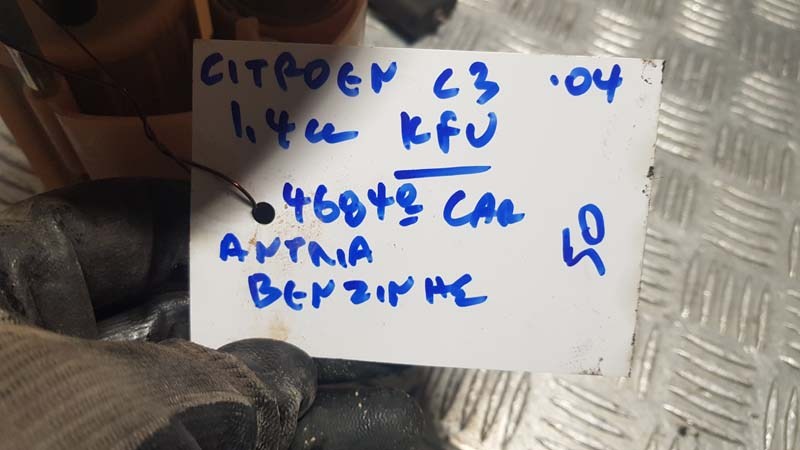 CITROEN C3 '04
1.4cc KFU
4684º CAR
ANTΛIA
BENZINHE
50